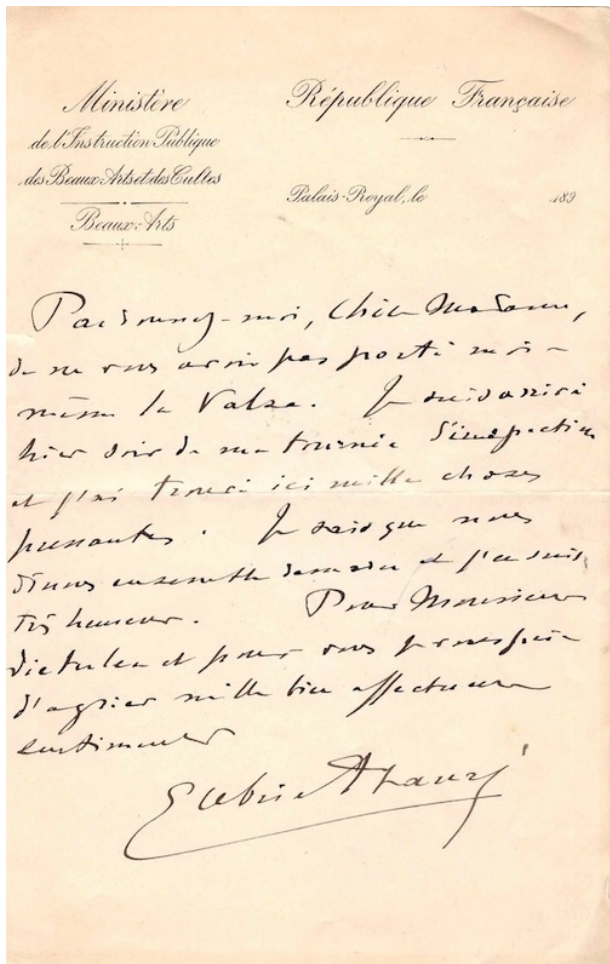 Ministère
de l'Instruction Publique
des Beaux-Arts et des Cultes
Beaux-Arts
République Française
Palais-Royal, le 189
Pardonnez-moi, chère Madame,
de ne vous avoir pas porté moi-
même la Valse. Je suis arrivé
hier soir de ma tournée d'inspection
et j'ai trouvé ici mille choses
pressantes. Je sais que nous
dînons ensemble demain et j'en suis
très heureux. Pour Monsieur
et pour vous je vous prie
d'agréer mille bien affectueux
sentiments
Gabriel Fauré